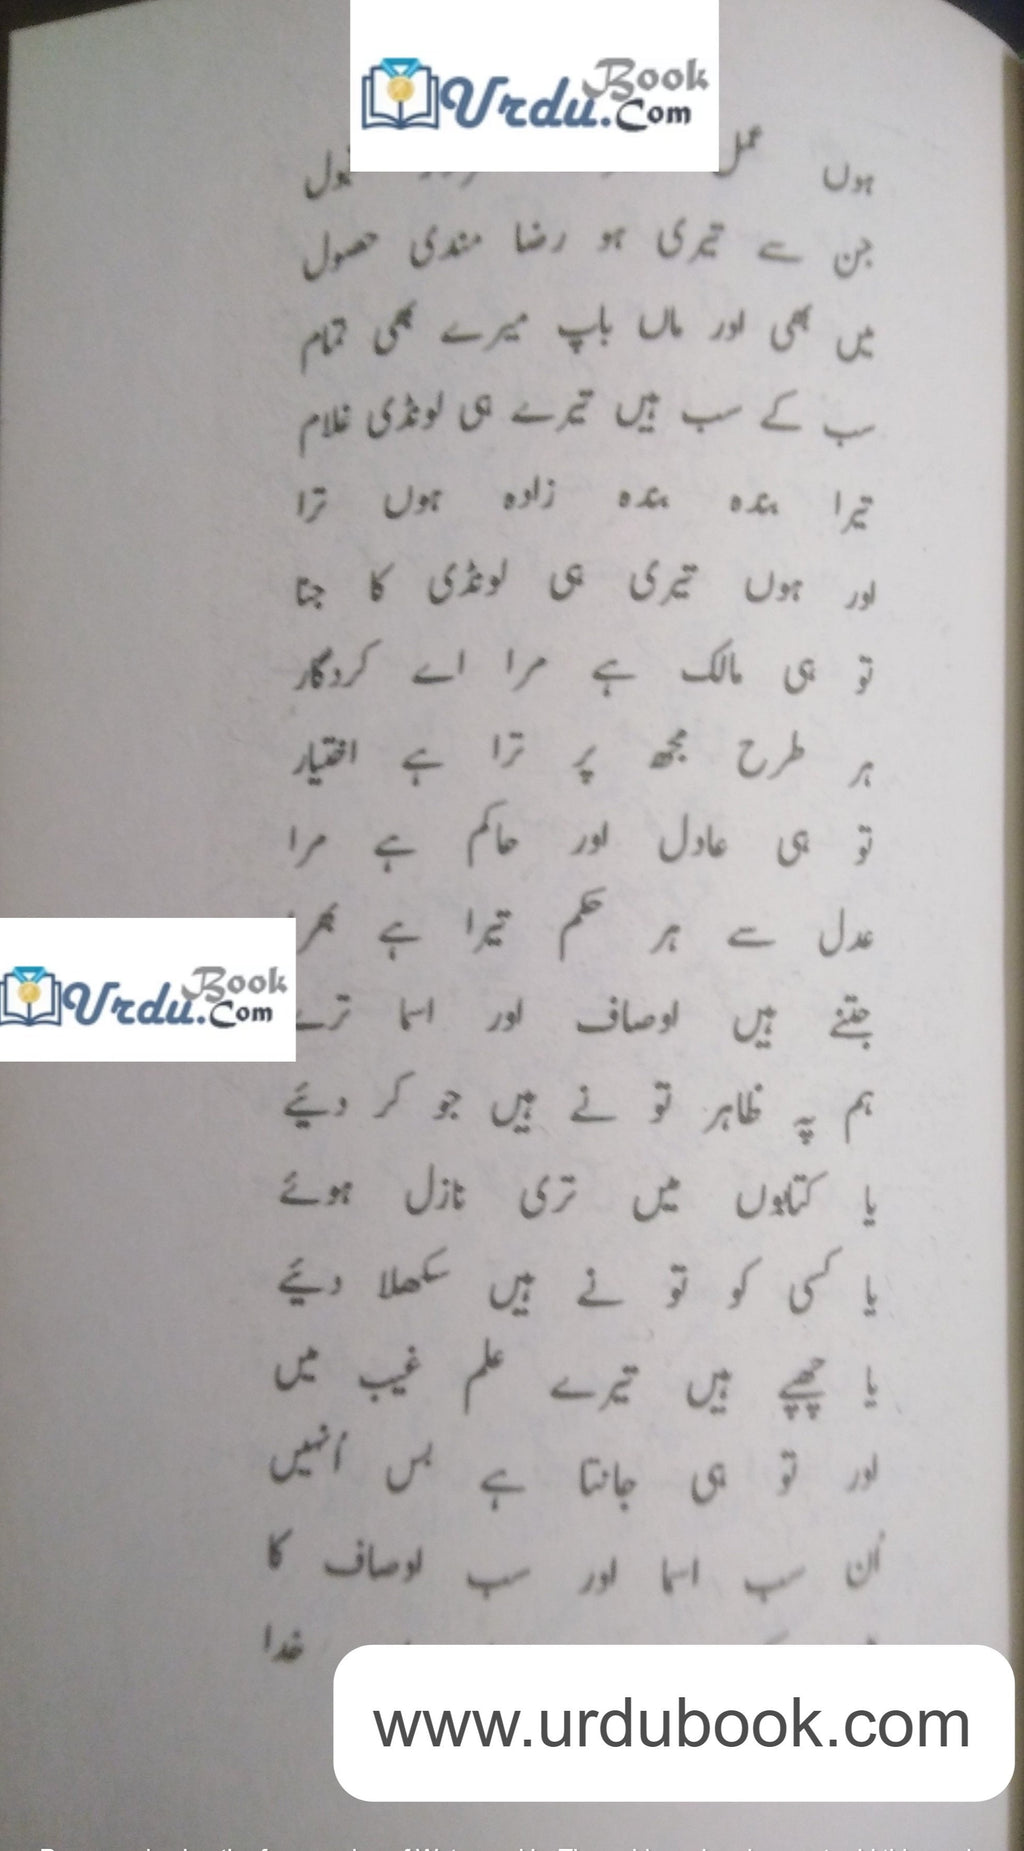 Urdu Book .Com
ہوں عمل قبول
جن سے تیری ہو رضا مندی حصول
میں بھی اور ماں باپ میرے بھی تمام
سب کے سب ہیں تیرے ہی لونڈی غلام
تیرا بندہ بندہ زادہ ہوں ترا
اور ہوں تیری ہی لونڈی کا جنا
تو ہی مالک ہے مرا اے کردگار
ہر طرح مجھ پر ترا ہے اختیار
تو ہی عادل اور حاکم ہے مرا
عدل سے ہر حکم تیرا ہے بھرا
Urdu Book .Com
جتنے ہیں اوصاف اور اسما ترے
ہم پہ ظاہر تو نے ہیں جو کر دیئے
یا کتابوں میں تری نازل ہوئے
یا کسی کو تو نے ہیں سکھلا دیئے
یا چھپے ہیں تیرے علم غیب میں
اور تو ہی جانتا ہے بس اُنہیں
اُن سب اسما اور سب اوصاف کا
خدا
www.urdubook.com